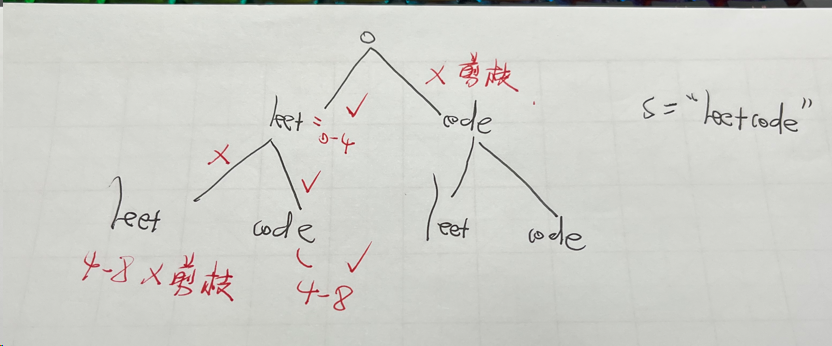 0
× 剪枝
leet = ✓
0-4
code
s = "leetcode"
×
✓
leet
code
leet
code
4-8 × 剪枝
✓
4-8